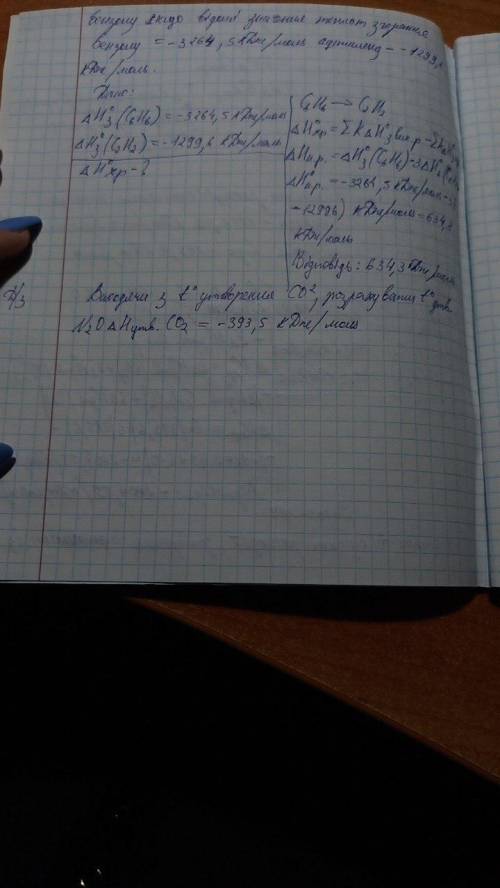 бензолу якщо відомі значення теплот згорання
бензолу = -3264,5 кДж/моль ацетилену - -1299,
кДж/моль.
Дано:
ΔH°з (C6H6) = -3264,5 кДж/моль
ΔH°з (C2H2) = -1299,6 кДж/моль
ΔH°хр - ?
C6H6 → C2H2
ΔH°хр = ΣKΔH°з вих.р -
ΔHх.р. = ΔH°з (C6H6) - 3ΔH°з
ΔH°х.р. = -3264,5 кДж/моль -
-1299,6) кДж/моль = 634,3
кДж/моль
Відповідь: 634,3 кДж/моль
Д/з Виходячи з t° утворення CO2, розрахувати t° утв.
N2O ΔHутв. CO2 = -393,5 кДж/моль